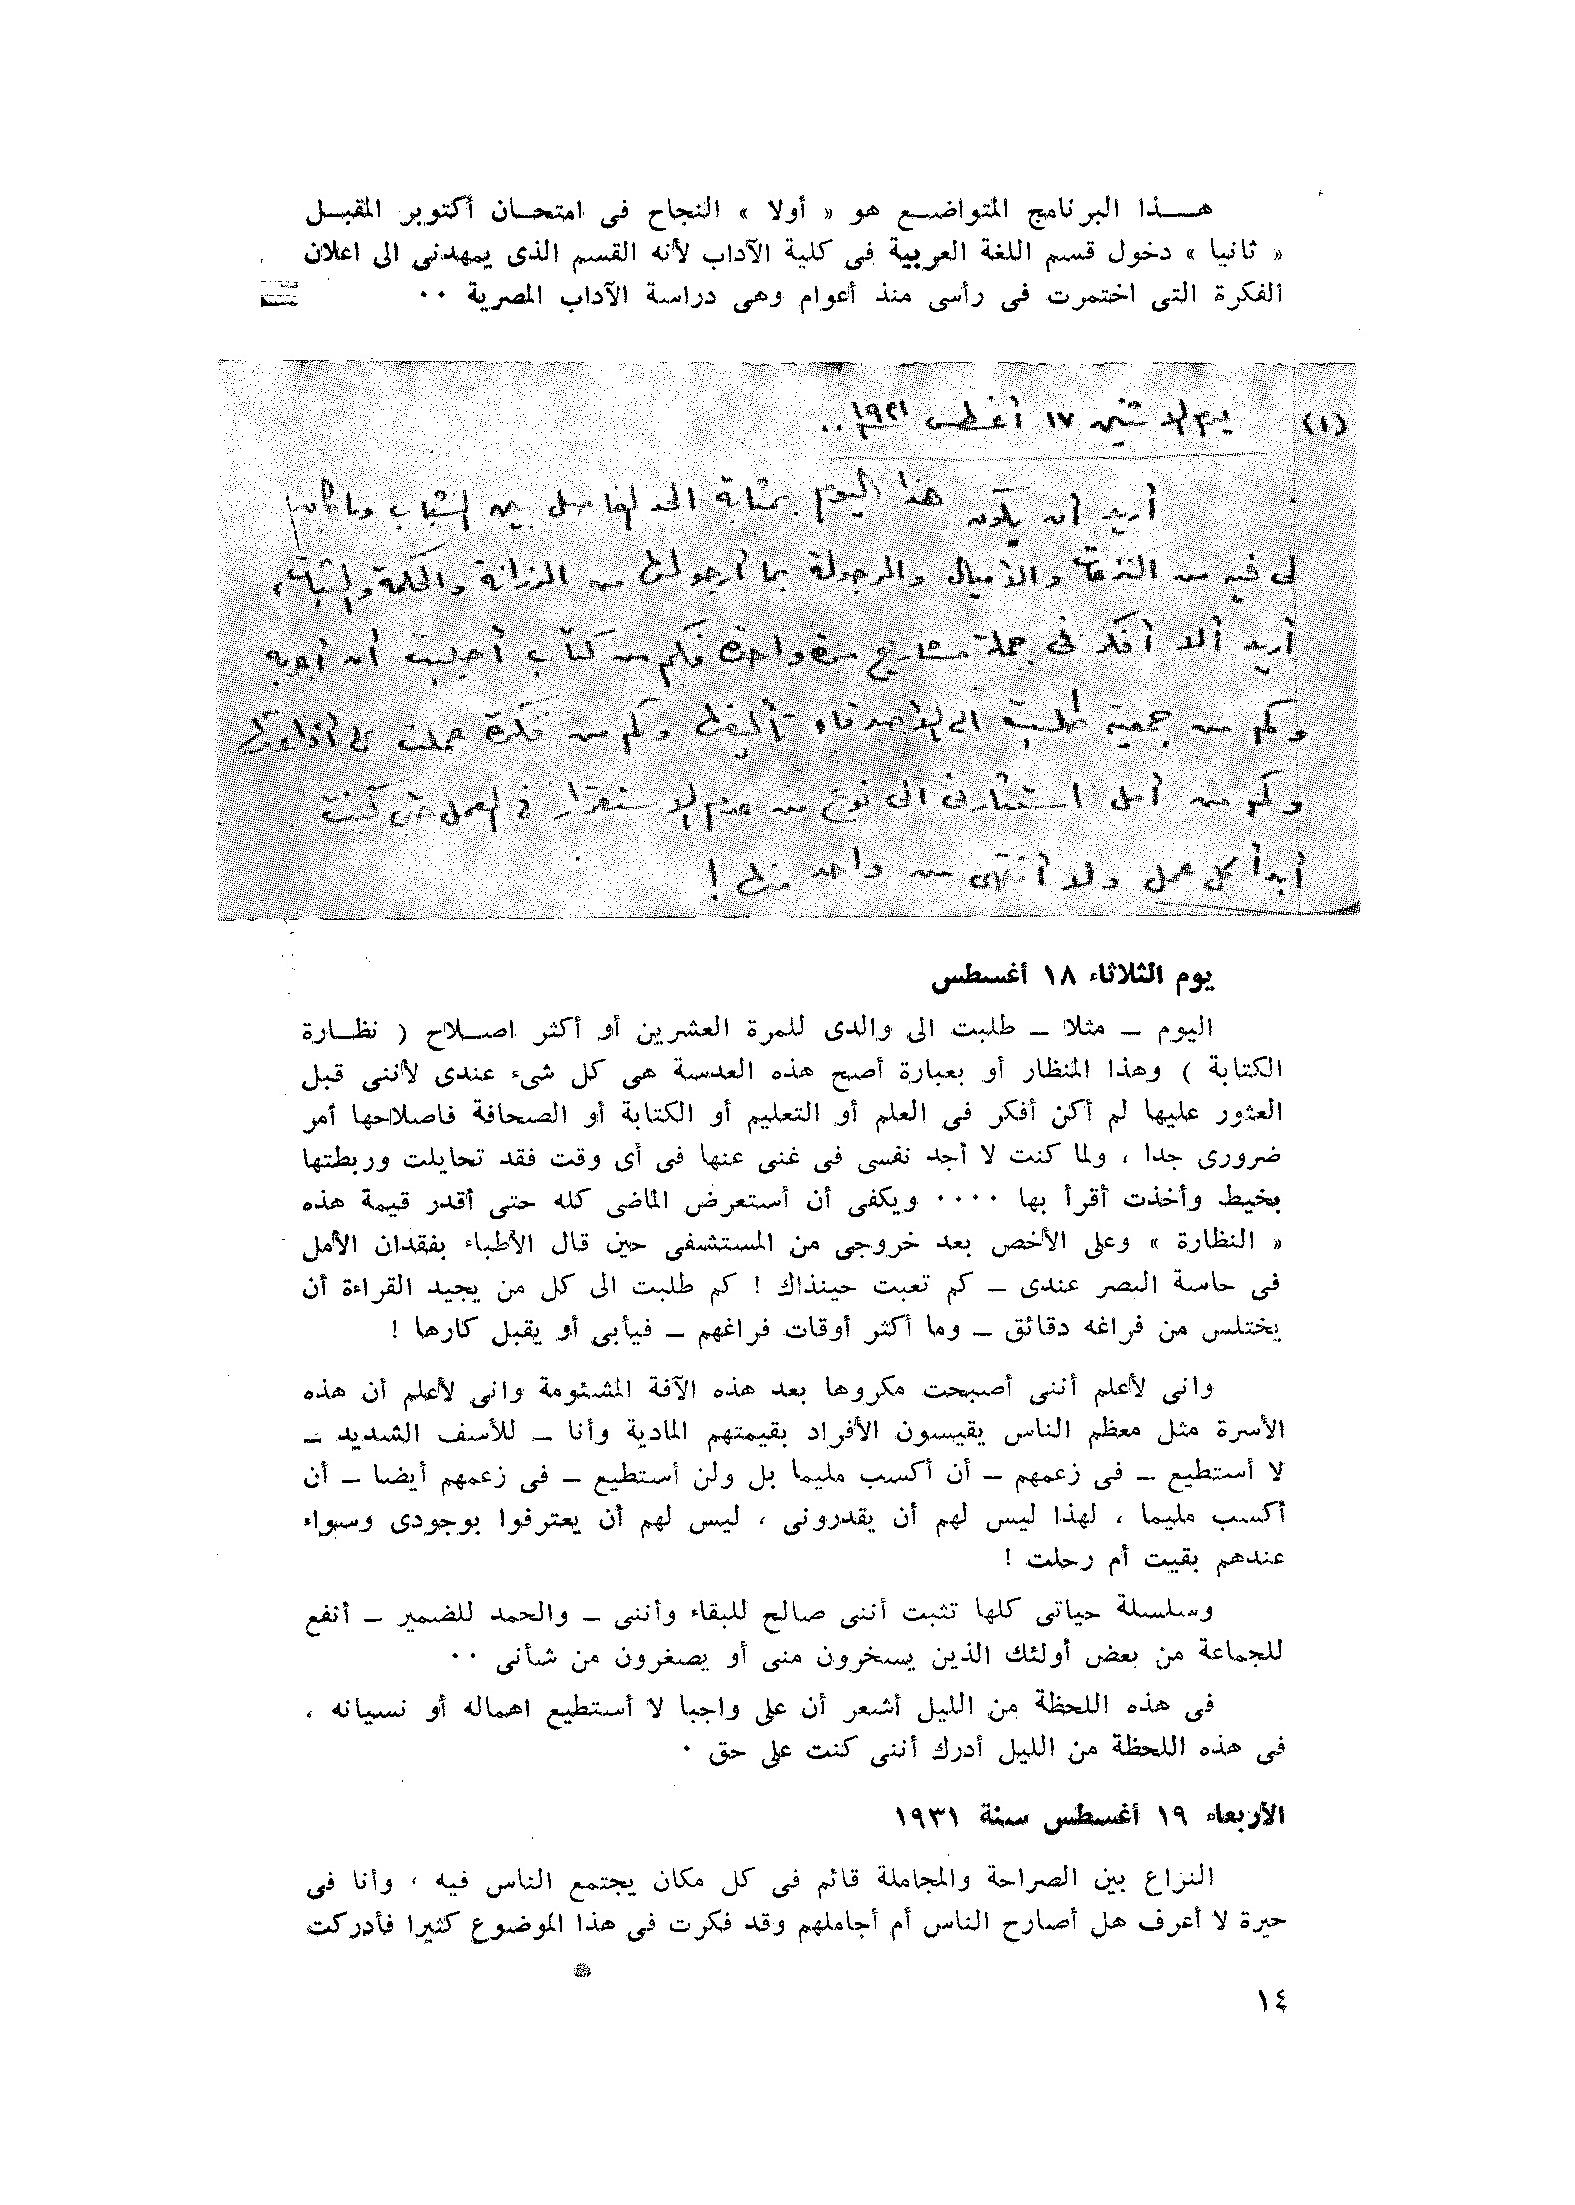 هـــذا البرنامج المتواضـــع هو « أولا » النجاح فى امتحــان أكتوبر المقبــل
« ثانيا » دخول قسم اللغة العربية فى كلية الآداب لأنه القسم الذى يمهدنى الى اعلان
الفكرة التى اختمرت فى رأسى منذ أعوام وهى دراسة الآداب المصرية ٠٠
(١) يوم الاثنين ١٧ أغسطس ١٩٣١ ..
أريد أن يكون هذا اليوم بمثابة الحد الفاصل بين الشباب وما كان
لى فيه من النزعات والأميال والرجولة بما أرجو لى من الرزانة والحكمة والثبات،
أريد ألا أفكر فى جملة مشاريع مرة واحدة فكم من كتاب أحببت أن
وكم من جمعية طلبت الى الأصدقاء تأليفى وكم من فكرة عملت على
وكم من أمل استثارنى الى نوع من عدم الاستقرار فى العمل كنت
أبدأ كل عمل ولا أنتهى من واحد منها !
يوم الثلاثاء ١٨ أغسطس
اليوم ــ مثلا ــ طلبت الى والدى للمرة العشرين أو أكثر اصــلاح ( نظــارة
الكتابة ) وهذا المنظار أو بعبارة أصح هذه العدسة هى كل شىء عندى لأننى قبل
العثور عليها لم أكن أفكر فى العلم أو التعليم أو الكتابة أو الصحافة فاصلاحها أمر
ضرورى جدا ، ولما كنت لا أجد نفسى فى غنى عنها فى أى وقت فقد تحايلت وربطتها
بخيط وأخذت أقرأ بها ٠٠٠٠ ويكفى أن أستعرض الماضى كله حتى أقدر قيمة هذه
« النظارة » وعلى الأخص بعد خروجى من المستشفى حين قال الأطباء بفقدان الأمل
فى حاسة البصر عندى ــ كم تعبت حينذاك ! كم طلبت الى كل من يجيد القراءة أن
يختلس من فراغه دقائق ــ وما أكثر أوقات فراغهم ــ فيأبى أو يقبل كارها !
وانى لأعلم أننى أصبحت مكروها بعد هذه الآفة المشئومة وانى لأعلم أن هذه
الأسرة مثل معظم الناس يقيسون الأفراد بقيمتهم المادية وأنا ــ للأسف الشديد ــ
لا أستطيع ــ فى زعمهم ــ أن أكسب مليما بل ولن أستطيع ــ فى زعمهم أيضا ــ أن
أكسب مليما ، لهذا ليس لهم أن يقدرونى ، ليس لهم أن يعترفوا بوجودى وسواء
عندهم بقيت أم رحلت !
وسلسلة حياتى كلها تثبت أننى صالح للبقاء وأننى ــ والحمد للضمير ــ أنفع
للجماعة من بعض أولئك الذين يسخرون منى أو يصغرون من شأنى ٠٠
فى هذه اللحظة من الليل أشعر أن على واجبا لا أستطيع اهماله أو نسيانه ،
فى هذه اللحظة من الليل أدرك أننى كنت على حق ٠
الأربعاء ١٩ أغسطس سنة ١٩٣١
النزاع بين الصراحة والمجاملة قائم فى كل مكان يجتمع الناس فيه ، وأنا فى
حيرة لا أعرف هل أصارح الناس أم أجاملهم وقد فكرت فى هذا الموضوع كثيرا فأدركت
١٤